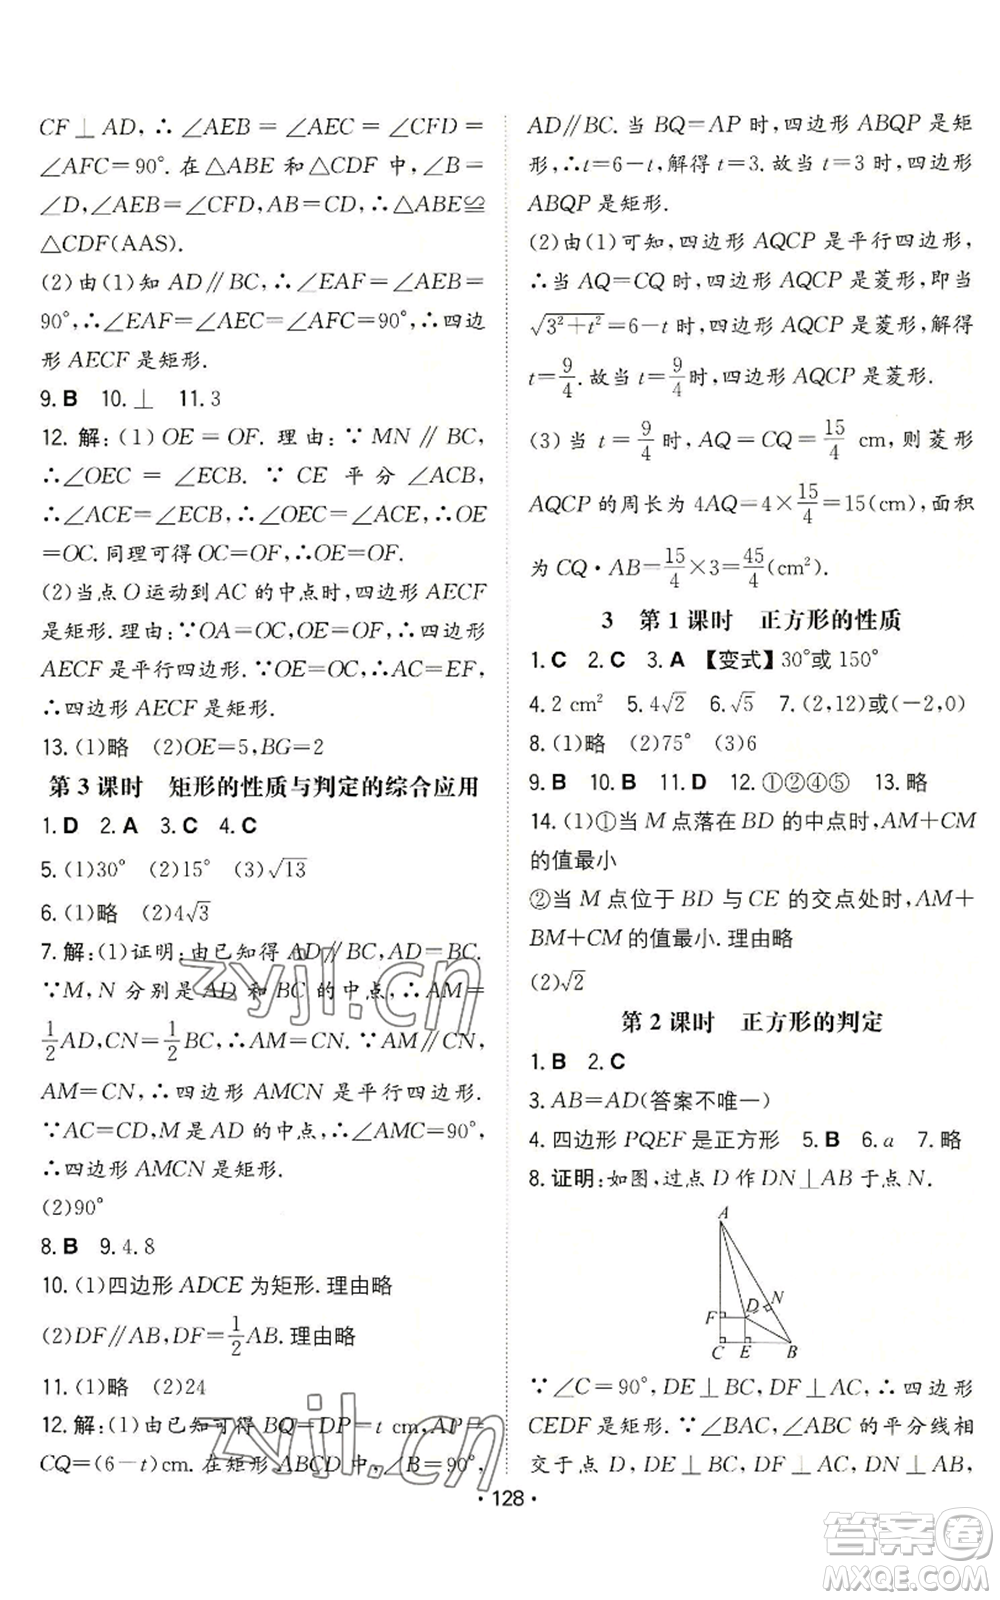 CF⊥AD,∴∠AEB=∠AEC=∠CFD=
∠AFC=90°.在△ABE和△CDF中,∠B=
∠D,∠AEB=∠CFD,AB=CD,∴△ABE≌
△CDF(AAS).
(2)由(1)知AD∥BC,∴∠EAF=∠AEB=
90°,∴∠EAF=∠AEC=∠AFC=90°,∴四边
形AECF是矩形.
9.B 10.⊥ 11.3
12.解:(1)OE=OF.理由:∵MN∥BC,
∴∠OEC=∠ECB.∵CE平分∠ACB,
∴∠ACE=∠ECB,∴∠OEC=∠ACE,∴OE
=OC.同理可得OC=OF,∴OE=OF.
(2)当点O运动到AC的中点时,四边形AECF
是矩形.理由:∵OA=OC,OE=OF,∴四边形
AECF是平行四边形.∵OE=OC,∴AC=EF,
∴四边形AECF是矩形.
13.(1)略 (2)OE=5,BG=2
第3课时 矩形的性质与判定的综合应用
1.D 2.A 3.C 4.C
5.(1)30° (2)15° (3)√13
6.(1)略 (2)4√3
7.解:(1)证明:由已知得AD∥BC,AD=BC.
∵M,N分别是AD和BC的中点,∴AM=
1/2AD,CN=1/2BC.∴AM∥CN,
AM=CN,∴四边形AMCN是平行四边形.
∵AC=CD,M是AD的中点,∴∠AMC=90°,
∴四边形AMCN是矩形.
(2)90°
8.B 9.4.8
10.(1)四边形ADCE为矩形.理由略
(2)DF∥AB,DF=1/2AB.理由略
11.(1)略 (2)24
12.解:(1)由已知可得BQ=DP=t cm,AP=
CQ=(6-t)cm.在矩形ABCD中,∠B=90°,
AD∥BC.当BQ=AP时,四边形ABQP是矩
形,∴t=6-t,解得t=3.故当t=3时,四边形
ABQP是矩形.
(2)由(1)可知,四边形AQCP是平行四边形,
∴当AQ=CQ时,四边形AQCP是菱形,即当
√(3²+t²)=6-t时,四边形AQCP是菱形,解得
t=9/4.故当t=9/4时,四边形AQCP是菱形.
(3)当t=9/4时,AQ=CQ=15/4 cm,则菱形
AQCP的周长为4AQ=4×15/4=15(cm),面积
为CQ·AB=15/4×3=45/4(cm²).
3 第1课时 正方形的性质
1.C 2.C 3.A 【变式】30°或150°
4.2 cm² 5.4√2 6.√5 7.(2,12)或(-2,0)
8.(1)略 (2)75° (3)6
9.B 10.B 11.D 12.①②④⑤ 13.略
14.(1)①当M点落在BD的中点时,AM+CM
的值最小
②当M点位于BD与CE的交点处时,AM+
BM+CM的值最小.理由略
(2)√2
第2课时 正方形的判定
1.B 2.C
3.AB=AD(答案不唯一)
4.四边形PQEF是正方形 5.B 6.a 7.略
8.证明:如图,过点D作DN⊥AB于点N.
A
D N
F
C E B
∵∠C=90°,DE⊥BC,DF⊥AC,∴四边形
CEDF是矩形.∵∠BAC,∠ABC的平分线相
交于点D,DE⊥BC,DF⊥AC,DN⊥AB,
·128·
zyjl.cn
zyjl.cn
答案卷
MXQE.COM